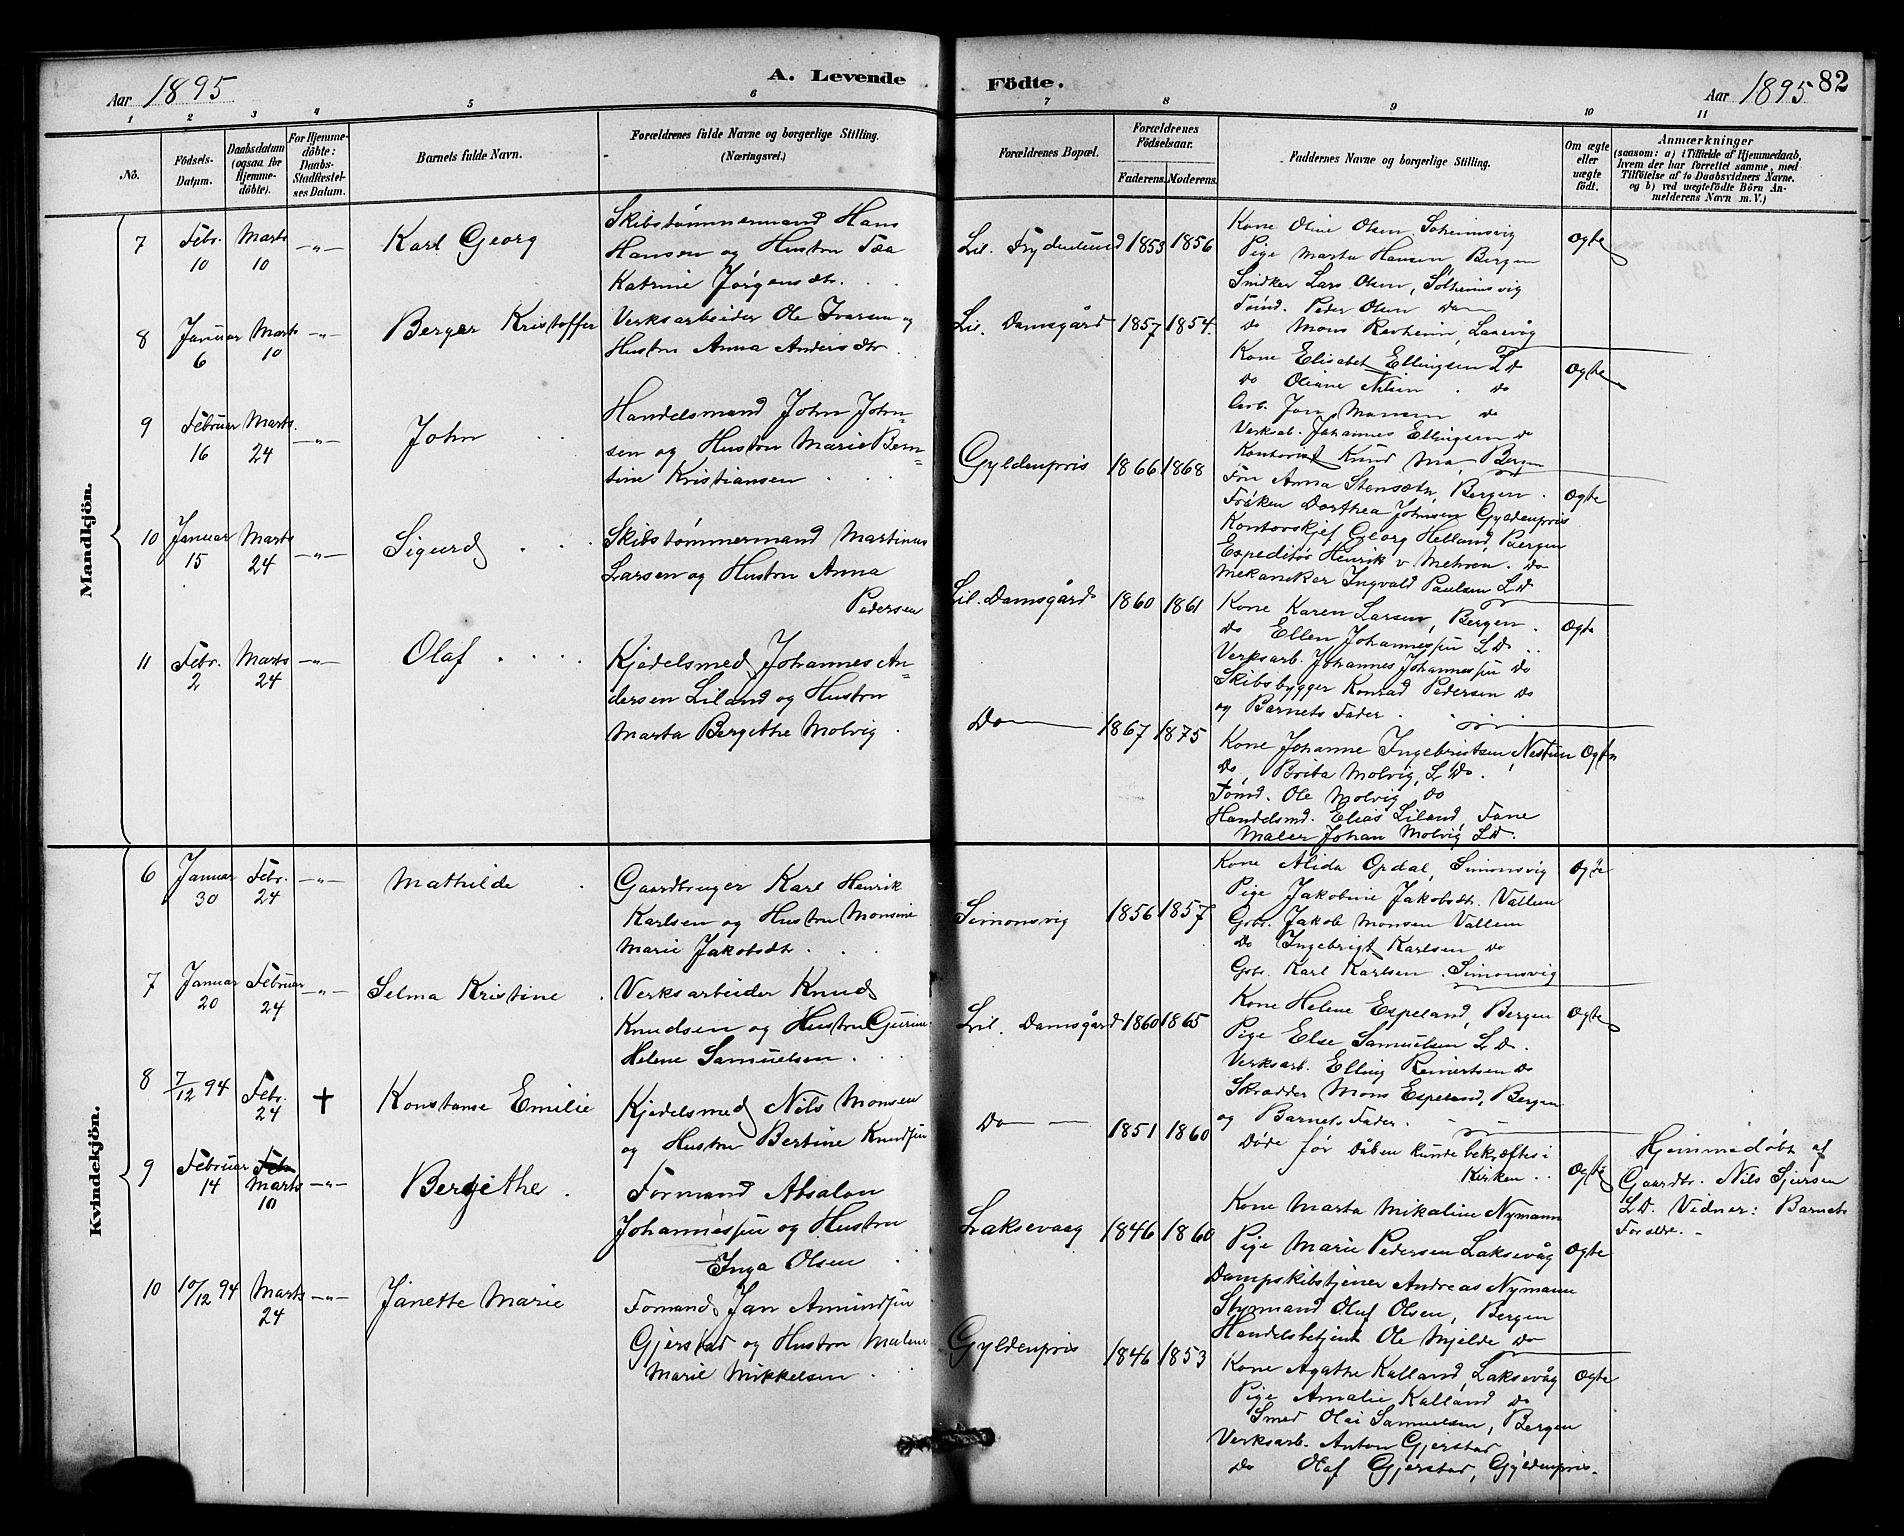 Aar 1895
A. Levende
Födte.
Aar 1895
82
1 2 3 4 5 6 7 8 9 10 11
No.
Födsels-
Datum.
Daabsdatum
(ogsaa for
Hjemme-
döbte).
For Hjemme-
döbte:
Daabs-
Stadfæstel-
ses Datum.
Barnets fulde Navn.
Forældrenes fulde Navne og borgerlige Stilling.
(Næringsvei.)
Forældrenes Bopæl.
Forældrenes
Födselsaar.
Faderens. Moderens.
Faddernes Navne og borgerlige Stilling.
Om ægte
eller
uægte
födt.
Anmærkninger
(saasom: a) i Tilfælde af Hjemmedaab,
hvem der har forrettet samme, med
Tilföielse af to Daabsvidners Navne.
og b) ved uægtefödte Börn An-
melderens Navn m. V.)
Mandkjön.
7 Febr. 10 Marts 10 -"- Karl Georg
Skibstømmermand Hans
Hansen og Hustru
Katrine Jørgensdtr.
Lil. Frydenlund 1853 1856
Kone Oline Olsen, Solheimsvig
Pige Marta Hansen Bergen
Snidker Lars Olsen, Solheimsvig
Tømd. Peder Olsen Do
Do Mons Ravheim, Laxevåg
Ogte
8 Januar 6 Marts 10 -"- Berger Kristoffer
Verksarbeider Ole Ivarsen og
Hustru Anna Andersdtr
Lil. Damsgård 1857 1854.
Kone Elisabet Ellingsen L D
Do Oliane Nilsen . Do
Arb. Jon Monsen Do
Verksab. Johannes Ellingsen Do
Ogte
9 Februar 16 Marts 24 -"- John
Handelsmand John John-
sen og Hustru Marie Bern-
tine Kristiansen
Gyldenpris 1866 1868
Kontorist Knud Bergen
Fru Anna Stensetn, Bergen.
Frøken Dorthea Johnsen Gyldenpris
Kontorskjef Georg Helland, Bergen
Expeditør Henrik v Mehren. Do
Mekaniker Ingvald Paulsen L D
Ogte
10 Januar 15 Marts 24 -"- Sigurd
Skibstømmermand Martinus
Larsen og Hustru Anna
Pedersen
Lil. Damsgård 1860 1861
Kone Karen Larsen, Bergen.
Do Ellen Johannessen L D
Verksarb. Johannes Johannessen Do
Skibsbygger Konrad Pedersen Do
og Barnets Fader
Ogte
11 Febr. 2 Marts 24 -"- Olaf
Kjedelsmed Johannes An-
dersen Liland og Hustru
Marta Bergithe Molvig
Do 1867 1875
Kone Johanne Ingebrigtsen, Nestun
Do, Brita Molvig, L D.
Tømd. Ole Molvig, Do
Handelsmd. Elias Liland, Fane
Maler Johan Molvig L D.
Ogte
Kvindekjön.
6 Januar 30 Febr. 24 -"- Mathilde
Gaardbruger Karl Henrik
Karlsen og Hustru Monsine
Marie Jakobsdtr.
Simonsvig 1856 1857
Kone Alida Opdal, Simonsvig
Pige Jakobine Jakobsdtr. Vallem
Gbr. Jakob Monsen Vallem
Do Ingebrigt Karlsen Do
Gbr. Karl Karlsen. Simonsvig
Ogte
7 Januar 20 Februar 24 -"- Selma Kristine
Verksarbeider Knud
Knudsen og Hustru Gurine
Helene Samuelsen
Lil. Damsgård 1860 1865
Kone Helene Espeland, Bergen
Pige Else Samuelsen L D.
Verksarb. Elling Reinertsen Do
Skrædder Mons Espeland, Bergen
og Barnets Fader.
Ogte
8 7/12 94 Febr. 24 † Konstanse Emilie
Kjedelsmed Nils Monsen
og Hustru Bertine Knudsen
Do 1851 1860
Døde før Dåben kunde bekræftes i
Kirken
Ogte
Hjemmedøbt af
Gaardbr. Nils Sjursen
L D. Vidner: Barnets
Foraldre.
9 Februar 14 Febr Marts 10 -"- Bergithe
Formand Absalon
Johannessen og Hustru
Inga Olsen
Laksevaag 1846 1860
Kone Marta Mikaline Nymann
Pige Marie Pedersen Laksevåg
Dampskibstjener Andreas Nymann
Styrmand Oluf Olsen, Bergen
Handelsbetjent Ole Mjelde Do
Ogte
10 10/12 94 Marts 24 -"- Janette Marie
Formand Jan Amundsen
Gjerstad og Hustru Malene
Marie Mikkelsen
Gyldenpris 1846 1853
Kone Agathe Kalland, Laksevåg
Pige Amalie Kalland Do
Smed Olai Samuelsen, Bergen
Verksarb. Anton Gjerstad
Do Olaf Gjerstad, Gyldenpris.
Ogte